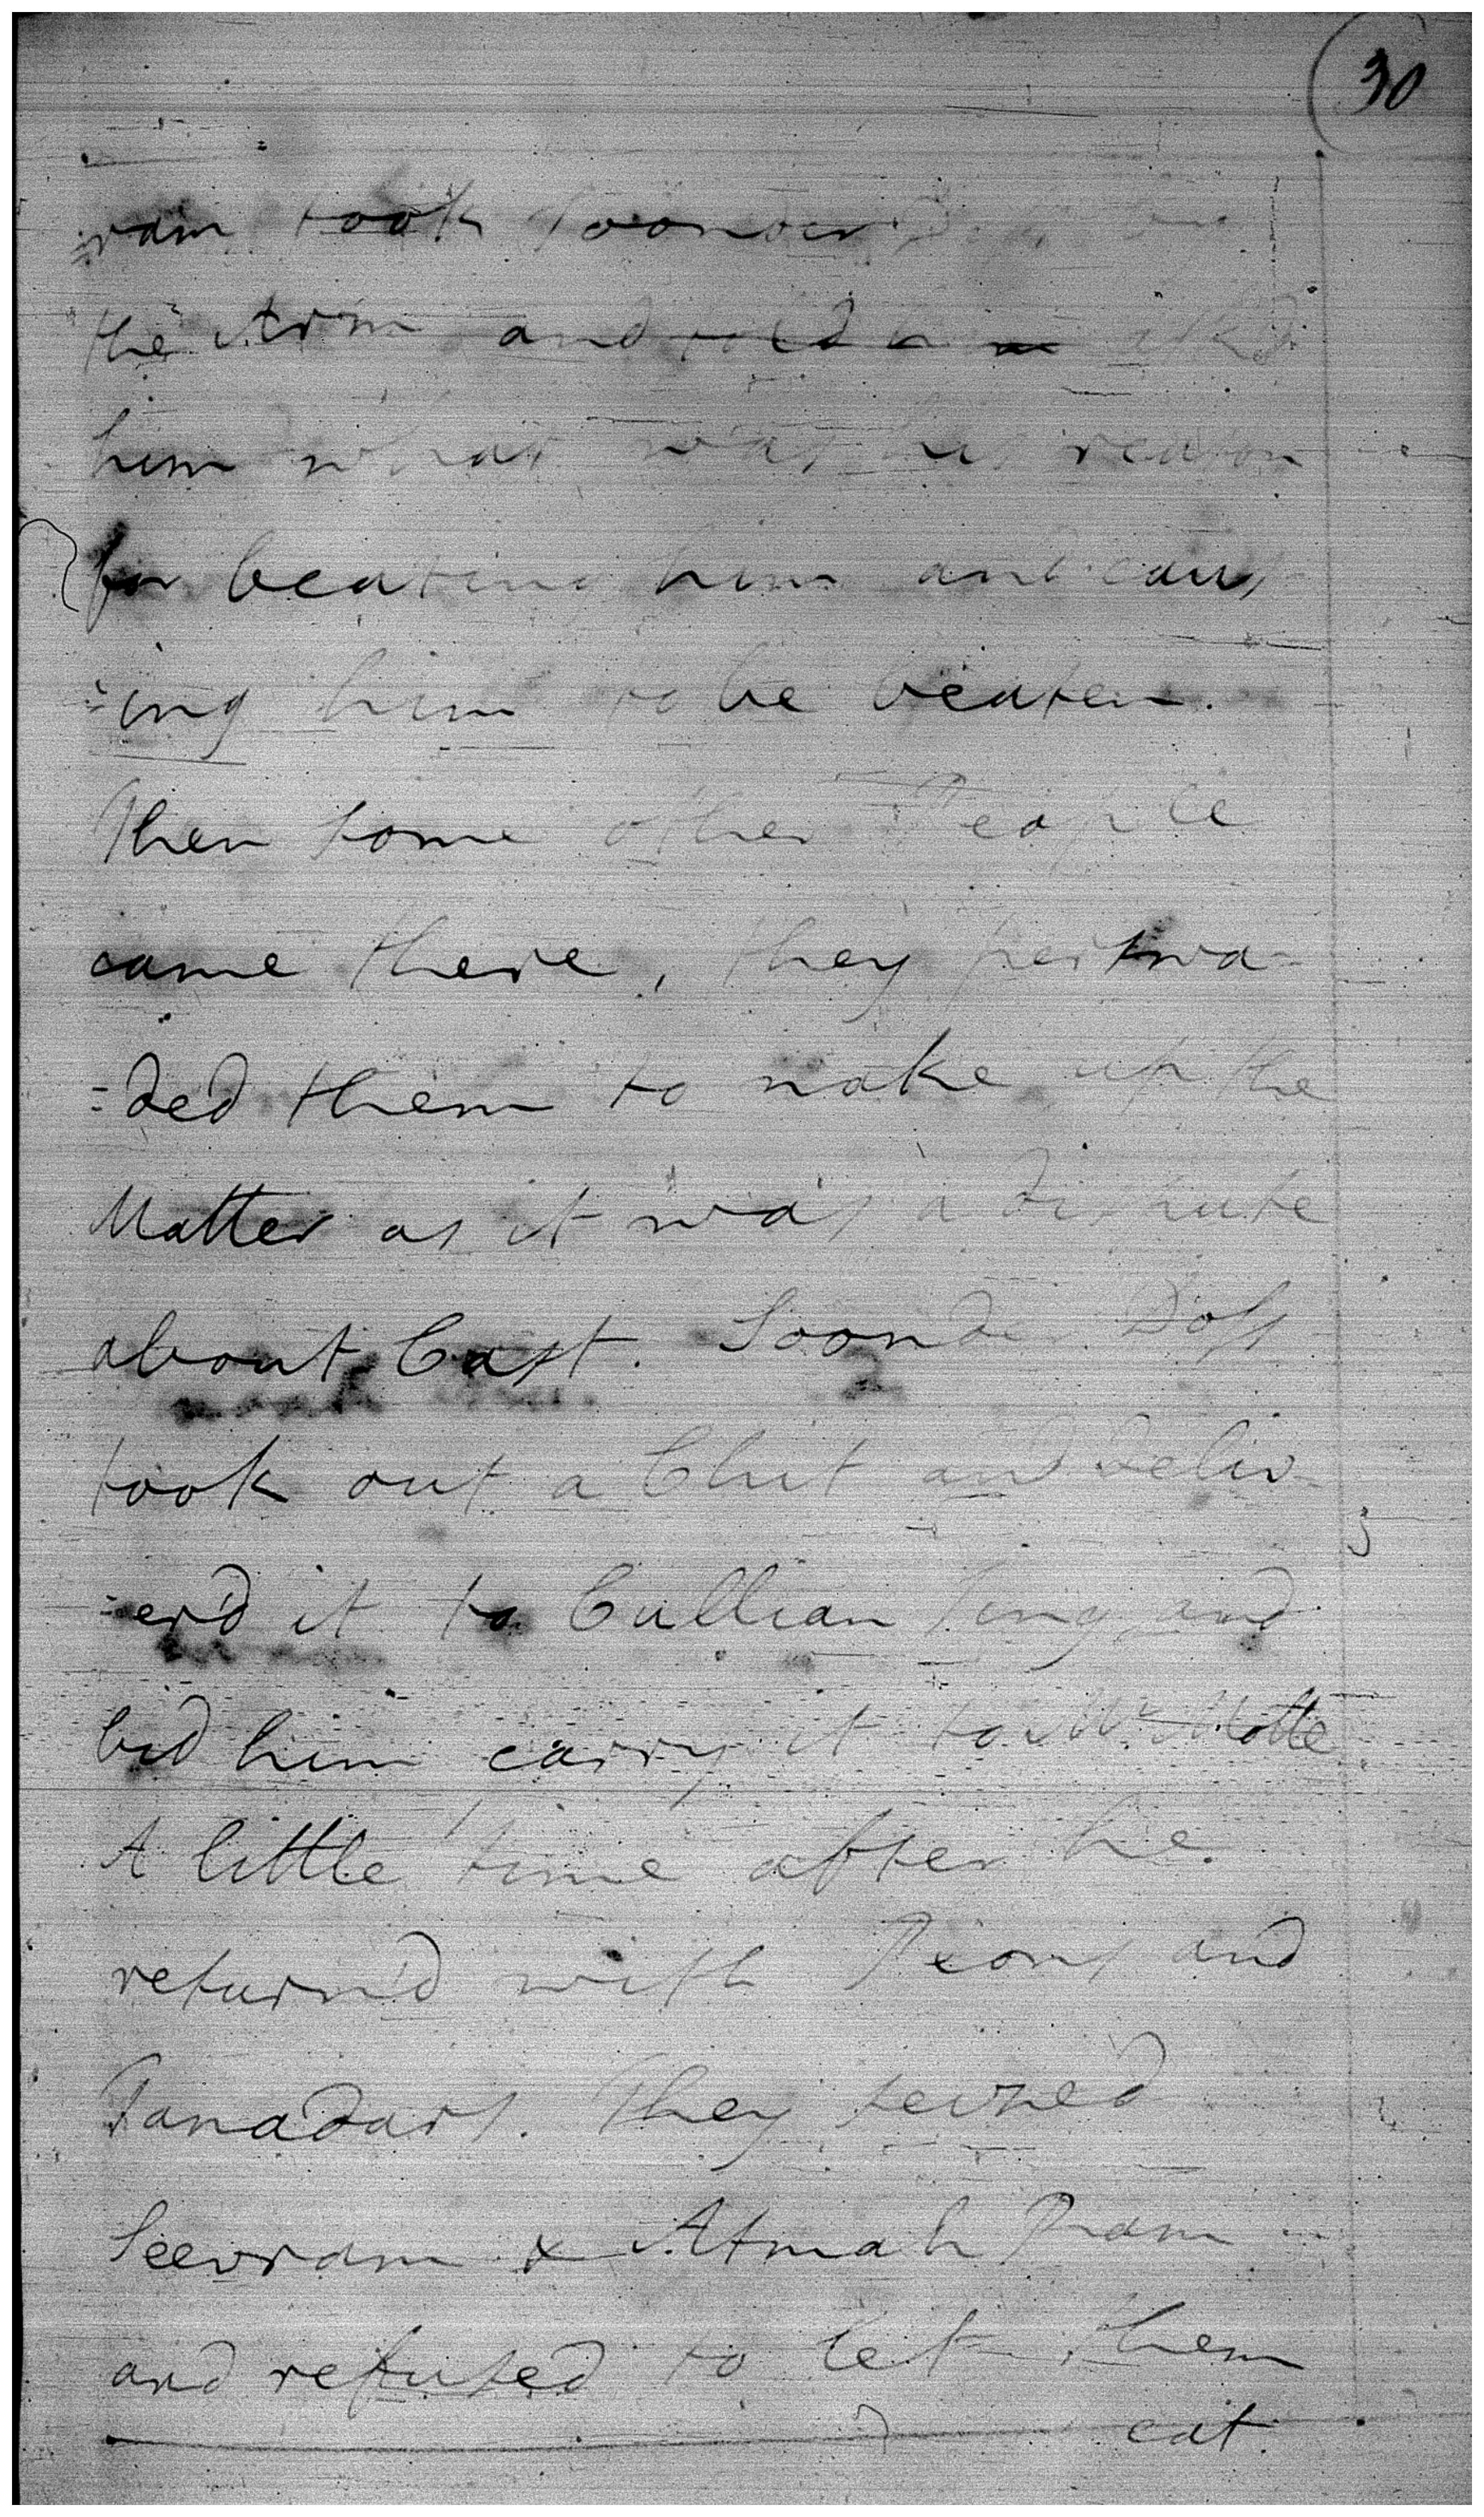 30
=ram took Soonder by
the Arm and ask'd
him what was his reason
for beating him and caus
=ing him to be beaten.
Then some other People
came there, they perswa-
=ded them to make up the
Matter as it was a dispute
about Cast. Soonder Doss
took out a Chit and deliv-
=er'd it to Cullian Sing and
bid him carry it to Mr. Motte
A little time after he
return'd with Peons and
Tanadars. They seized
Seevram & Atmah Ram
and refused to let them
eat.